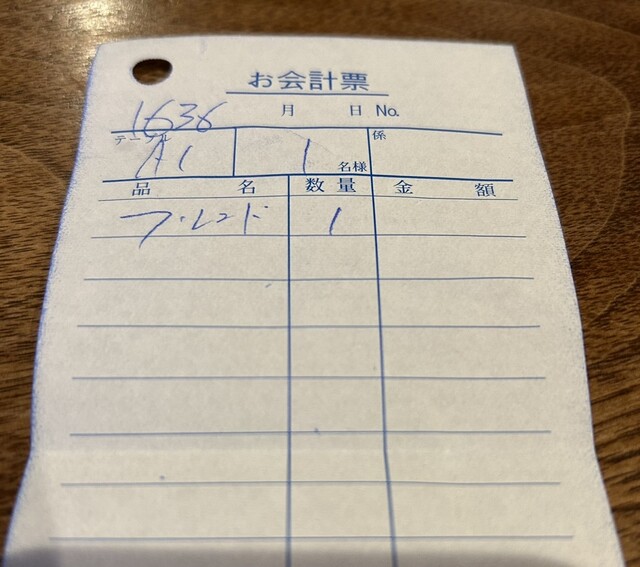 お会計票
1636 月 日 No.
テーブル A1 1 名様 係
品名 数量 金額
ブレンド 1